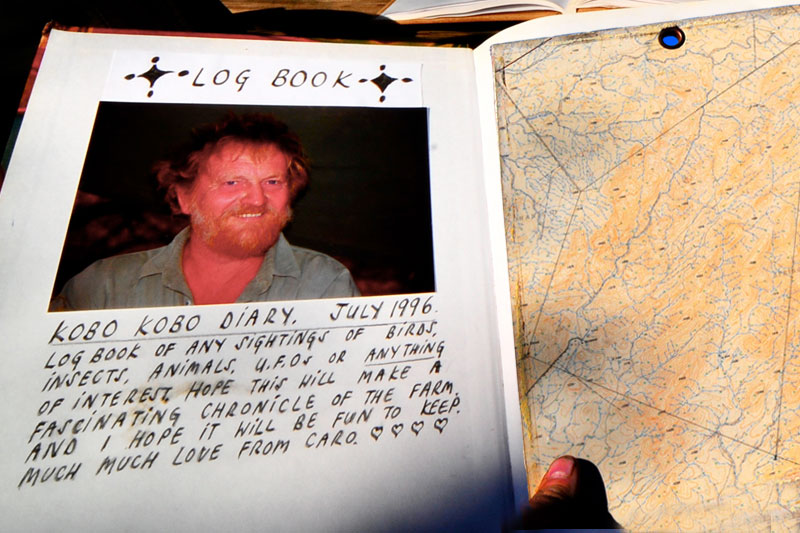 LOG BOOK
KOBO KOBO DIARY, JULY 1996.
LOG BOOK OF ANY SIGHTINGS OF BIRDS,
INSECTS, ANIMALS, U.F.OS OR ANYTHING
OF INTEREST. HOPE THIS WILL MAKE A
FASCINATING CHRONICLE OF THE FARM.
AND I HOPE IT WILL BE FUN TO KEEP.
MUCH MUCH LOVE FROM CARO. ♡ ♡ ♡ ♡